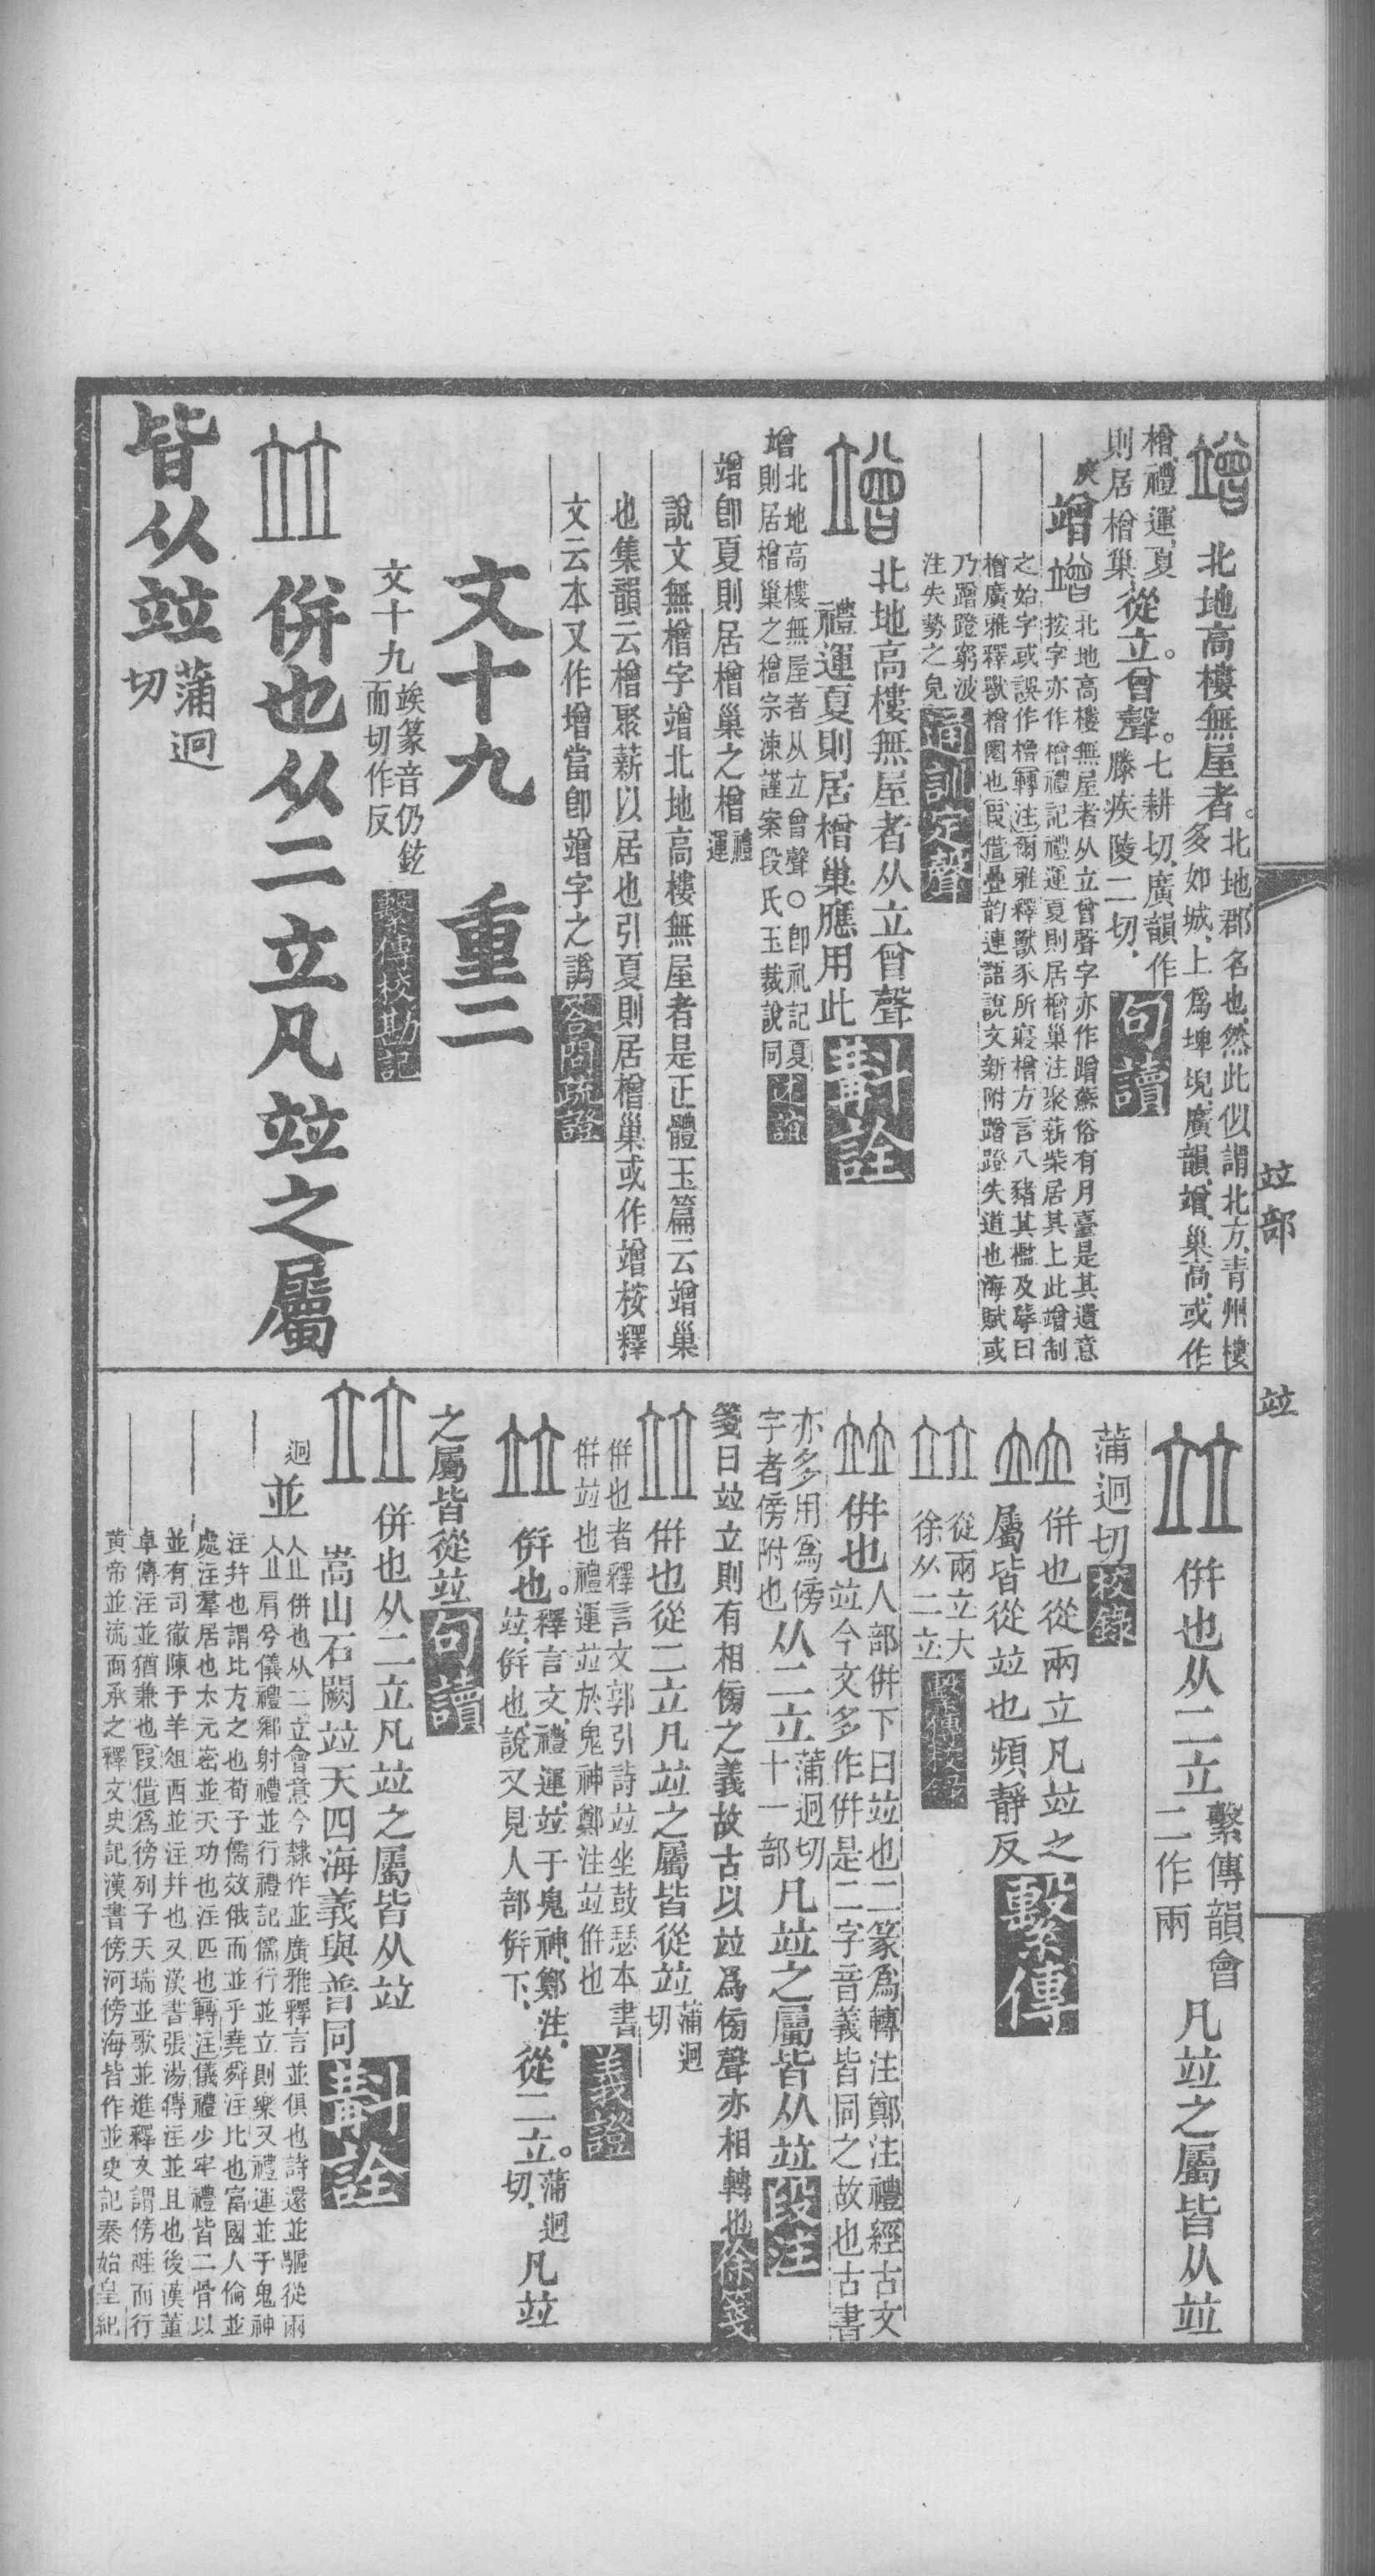 竲北地高樓無屋者。北地郡名也，然此似謂北方，青州樓
多如城，上爲埤堄，廣韻，竲，巢高，或作
橧，禮運，夏
則居橧巢，從立。曾聲。七耕切，廣韻作
滕疾陵二切，句讀
庚竲竲北地高樓無屋者从立曾聲字亦作蹭蘇俗有月臺是其遺意
按字亦作橧禮記禮運夏則居橧巢注聚薪柴居其上此竲制
之始字或誤作櫓轉注爾雅釋獸豕所寢橧方言八豬其檻及蓐曰
橧廣雅釋獸橧圂也叚借疊韵連語說文新附蹭蹬失道也海賦或
乃蹭蹬窮波
注失勢之皃通訓定聲
竲北地高樓無屋者从立曾聲
禮運夏則居橧巢應用此斠詮
竲北地高樓無屋者从立曾聲○卽礼記夏
則居橧巢之橧宗涑謹案段氏玉裁說同述誼
竲卽夏則居橧巢之橧禮運
說文無橧字竲北地高樓無屋者是正體玉篇云竲巢
也集韻云橧聚薪以居也引夏則居橧巢或作竲桉釋
文云本又作增當卽竲字之譌答問疏證
文十九　重二
文十九竢篆音仍鉉
而切作反繫傳校勘記
竝併也从二立凡竝之屬
皆从竝蒲迥
切
竝併也从二立繫傳韻會
二作兩凡竝之屬皆从竝
蒲迥切校錄
竝併也從兩立凡竝之
屬皆從竝也頻靜反繫傳
竝從兩立大
徐从二立繫傳校錄
竝併也人部併下曰竝也二篆爲轉注鄭注禮經古文
竝今文多作併是二字音義皆同之故也古書
亦多用爲傍
字者傍附也从二立蒲迥切
十一部凡竝之屬皆从竝段注
箋曰竝立則有相傍之義故古以竝爲傍聲亦相轉也徐箋
竝併也從二立凡竝之屬皆從竝蒲迥
切
併也者釋言文郭引詩竝坐鼓瑟本書
併竝也禮運竝於鬼神鄭注竝併也義證
竝併也。釋言文，禮運，竝于鬼神，鄭注，
竝，併也，說又見人部併下，從二立。蒲迥
切，凡竝
之屬皆從竝句讀
竝併也从二立凡竝之屬皆从竝
嵩山石闕竝天四海義與普同斠詮
迥並併也从二立會意今隸作並廣雅釋言並俱也詩還並驅從兩
肩兮儀禮鄉射禮並行禮記儒行並立則樂又禮運並于鬼神
注幷也謂比方之也荀子儒效俄而並乎堯舜注比也富國人倫並
處注羣居也太元密並天功也注匹也轉注儀禮少牢禮皆二骨以
並有司徹陳于羊俎西並注幷也又漢書張湯傳注並且也後漢董
卓傳注並猶兼也叚借爲徬列子天瑞並歌並進釋文謂傍畦而行
黃帝並流而承之釋文史記漢書傍河傍海皆作並史記秦始皇紀
竝部
竝